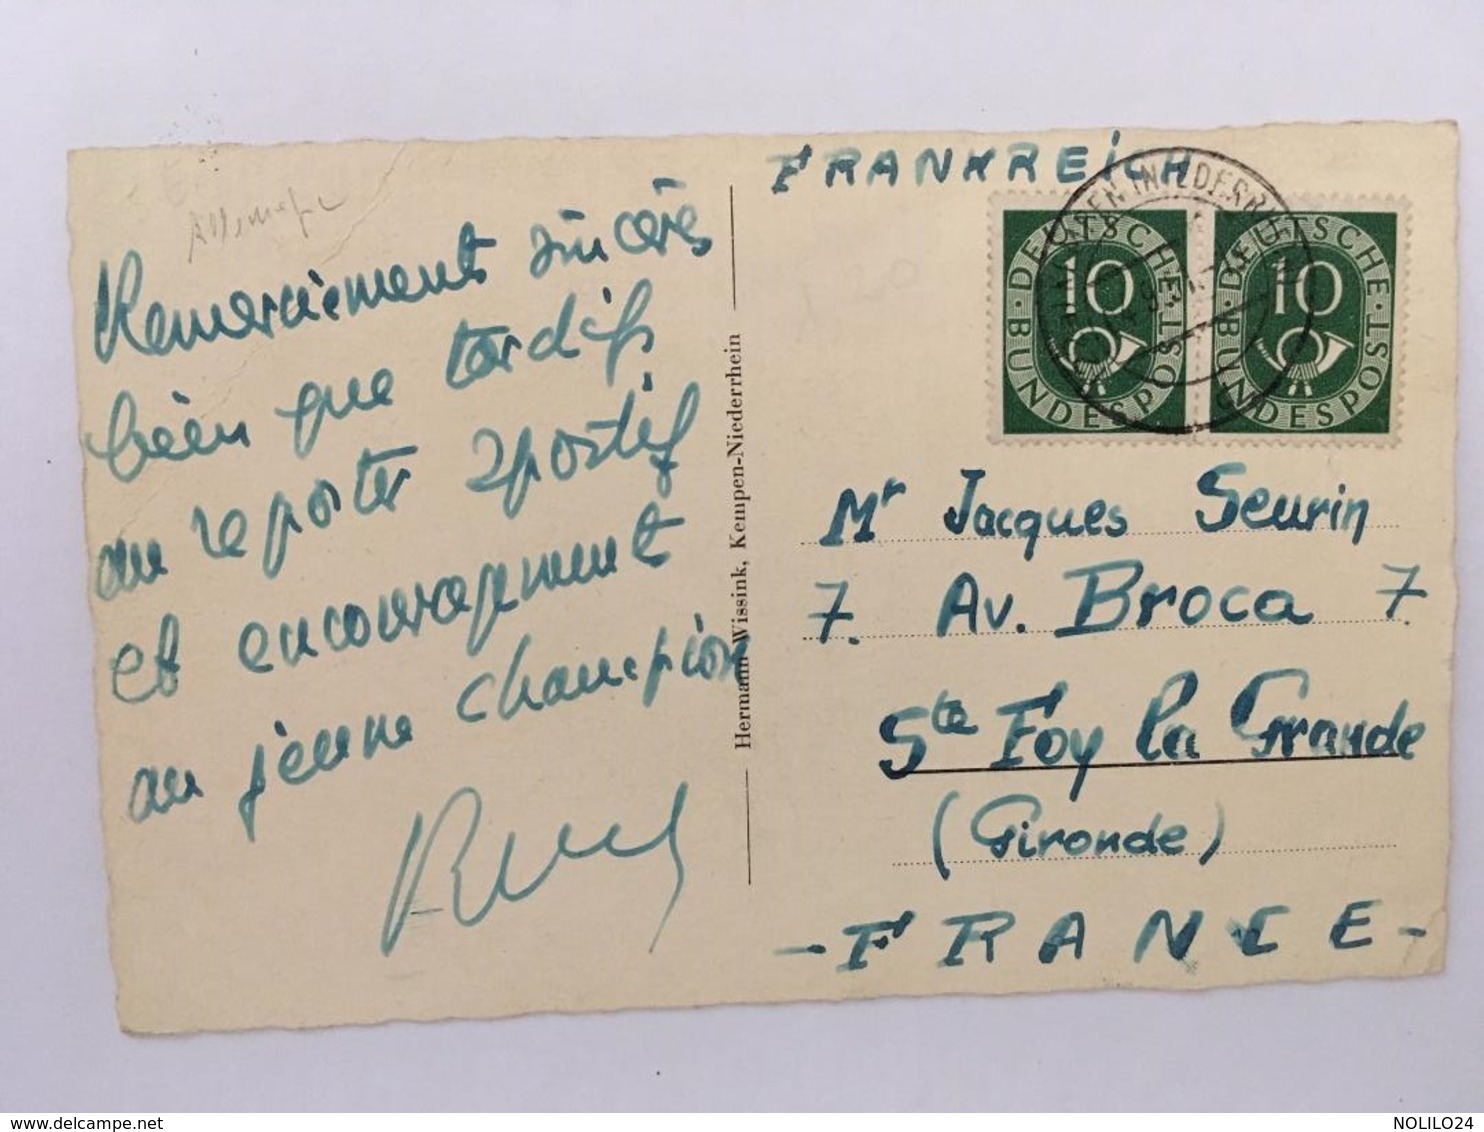 Allemagne
Remerciements sincères
bien que tardifs
au reporter sportif
et encouragements
au jeune champion
Hermann Wissink, Kempen-Niederrhein
FRANKREICH
DEUTSCHE BUNDESPOST 10
DEUTSCHE BUNDESPOST 10
Mr Jacques Seurin
7. Av. Broca 7.
Ste Foy la Grande
(Gironde)
- FRANCE -
delcampe.net
NOLILO24